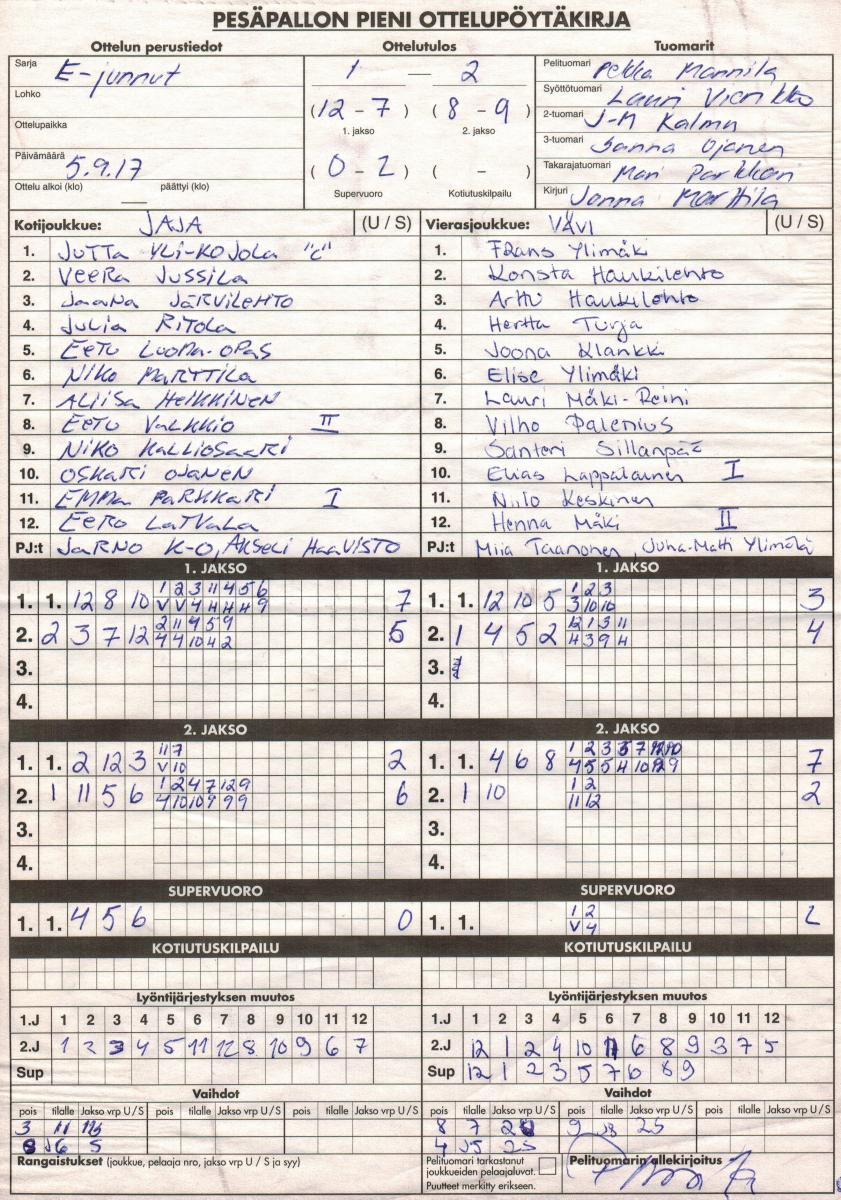 PESÄPALLON PIENI OTTELUPÖYTÄKIRJA
Ottelun perustiedot
Sarja E-junnut
Lohko
Ottelupaikka
Päivämäärä 5.9.17
Ottelu alkoi (klo) — päättyi (klo)
Ottelutulos
1 — 2
(12 - 7) (8 - 9)
1. jakso 2. jakso
(0 - 2) ( - )
Supervuoro Kotiutuskilpailu
Tuomarit
Pelituomari Pekka Mannila
Syöttötuomari Lauri
2-tuomari J-M Kalmu
3-tuomari Sanna Ojanen
Takarajatuomari Mari Parkkari
Kirjuri Jonna Marttila
Kotijoukkue: JAJA (U / S)
1. JUTTA YLI-KOJOLA "C"
2. VEERA JUSSILA
3. JAANA JÄRVILEHTO
4. JULIA RITOLA
5. EETU LUOMA-OPAS
6. NIKO MARTTILA
7. ALIISA HEIKKINEN
8. EETU VALKKIO II
9. NIKO KALLIOSAARI
10. OSKARI OJANEN
11. EMMA PARKKARI I
12. EERO LATVALA
PJ:t JARNO K-O, AKSELI HAAVISTO
Vierasjoukkue: VÄVI (U / S)
1. Frans Ylimäki
2. Konsta Haukilehto
3. Arttu Haukilehto
4. Hertta Turja
5. Joona Klankki
6. Elise Ylimäki
7. Lauri Mäki-Reini
8. Vilho Palenius
9. Santeri Sillanpää
10. Elias Lappalainen I
11. Niilo Keskinen
12. Henna Mäki II
PJ:t Miia Taanonen, Juha-Matti Ylimäki
1. JAKSO
1. 1. 12 8 10 1 2 3 11 4 5 6 7
V V 4 4 4 4 9
2. 2 3 7 12 2 11 4 5 9 5
4 4 10 4 2
3.
4.
1. JAKSO
1. 1. 12 10 5 1 2 3 3
3 10 10
2. 1 4 5 2 12 1 3 11 4
4 3 9 4
3.
4.
2. JAKSO
1. 1. 2 12 3 11 7 2
V 10
2. 1 11 5 6 1 2 4 7 12 9 6
4 10 10 9 9 9
3.
4.
2. JAKSO
1. 1. 4 6 8 1 2 3 7 10 7
4 5 5 4 10 9
2. 1 10 1 2 2
11 12
3.
4.
SUPERVUORO
1. 1. 4 5 6 0
SUPERVUORO
1. 1. 1 2 2
V 4
KOTIUTUSKILPAILU
KOTIUTUSKILPAILU
Lyöntijärjestyksen muutos
1.J 1 2 3 4 5 6 7 8 9 10 11 12
2.J 1 2 3 4 5 11 12 8 10 9 6 7
Sup
Lyöntijärjestyksen muutos
1.J 1 2 3 4 5 6 7 8 9 10 11 12
2.J 12 1 2 4 10 11 6 8 9 3 7 5
Sup 12 1 2 3 5 7 6 8 9
Vaihdot
pois tilalle Jakso vrp U/S pois tilalle Jakso vrp U/S pois tilalle Jakso vrp U/S
3 11
J6 S
Vaihdot
pois tilalle Jakso vrp U/S pois tilalle Jakso vrp U/S pois tilalle Jakso vrp U/S
8 7 9 J8 2S
4 J5 2S
Rangaistukset (joukkue, pelaaja nro, jakso vrp U / S ja syy)
Pelituomari tarkastanut
joukkueiden pelaajaluvat.
Puutteet merkitty erikseen.
Pelituomarin allekirjoitus